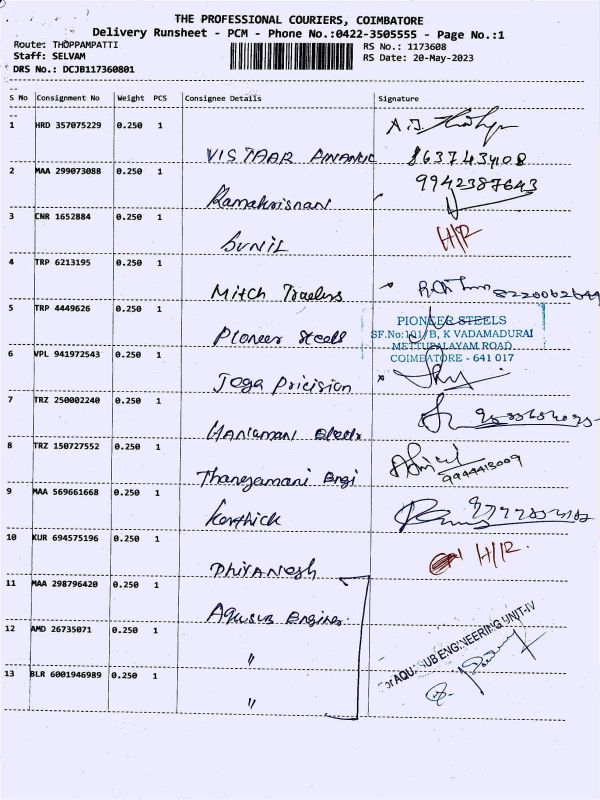 THE PROFESSIONAL COURIERS, COIMBATORE
Delivery Runsheet - PCM - Phone No.:0422-3505555 - Page No.:1
Route: THOPPAMPATTI RS No.: 1173608
Staff: SELVAM RS Date: 20-May-2023
DRS No.: DCJB117360801
S No Consignment No Weight PCS Consignee Details Signature
1 HRD 357075229 0.250 1
VISTAAR 8637434108
2 MAA 299073088 0.250 1 9942387643
Ramakrisnan
3 CNR 1652884 0.250 1 H/R
SUNIL
4 TRP 6213195 0.250 1
Mitch Traders
5 TRP 4449626 0.250 1
Pioneer Steels
PIONEER STEELS
SF.No:101/B, K VADAMADURAI
METTUPALAYAM ROAD
COIMBATORE - 641 017
6 VPL 941972543 0.250 1
Joga Pricision
7 TRZ 250002240 0.250 1
8 TRZ 150727552 0.250 1
Thangamani Engi 9944413009
9 MAA 569661668 0.250 1
Karthick
10 KUR 694575196 0.250 1 H/R.
11 MAA 298796420 0.250 1
Aquasub Engines
12 AMD 26735071 0.250 1
"
For AQUASUB ENGINEERING UNIT-IV
13 BLR 6001946989 0.250 1
"